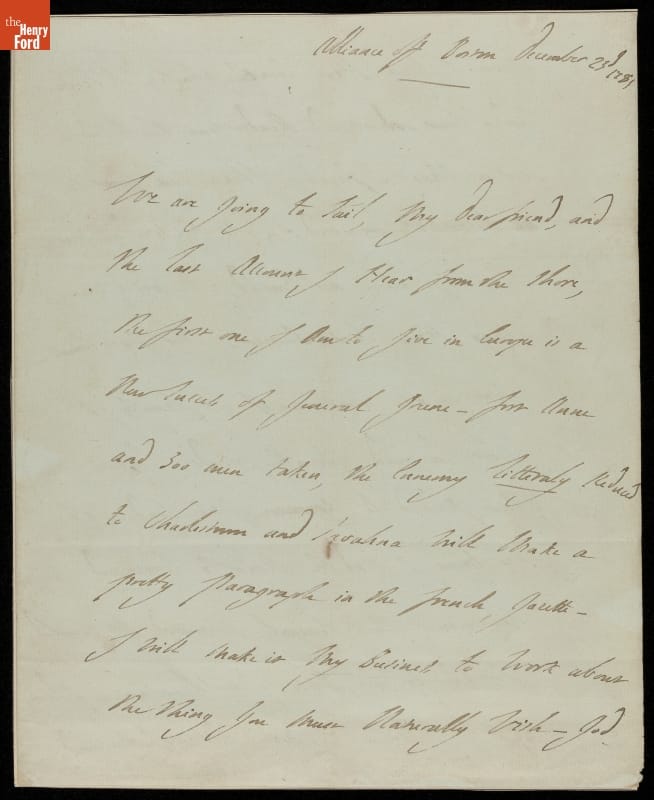 the
Henry
Ford
Alliance off Boston December 23d 1781
We are going to Sail, My dear friend, and
the last Account I Hear from the Shore,
the first one I am to give in Europe is a
New Success of General Greene - fort Anne
and 300 men taken, the Ennemy litteraly Reduced
to Charlestown and Savahna Will Make a
pretty Paragraph in the french Gazette -
I will make it My Business to Work about
the thing You Must Naturally Wish - God